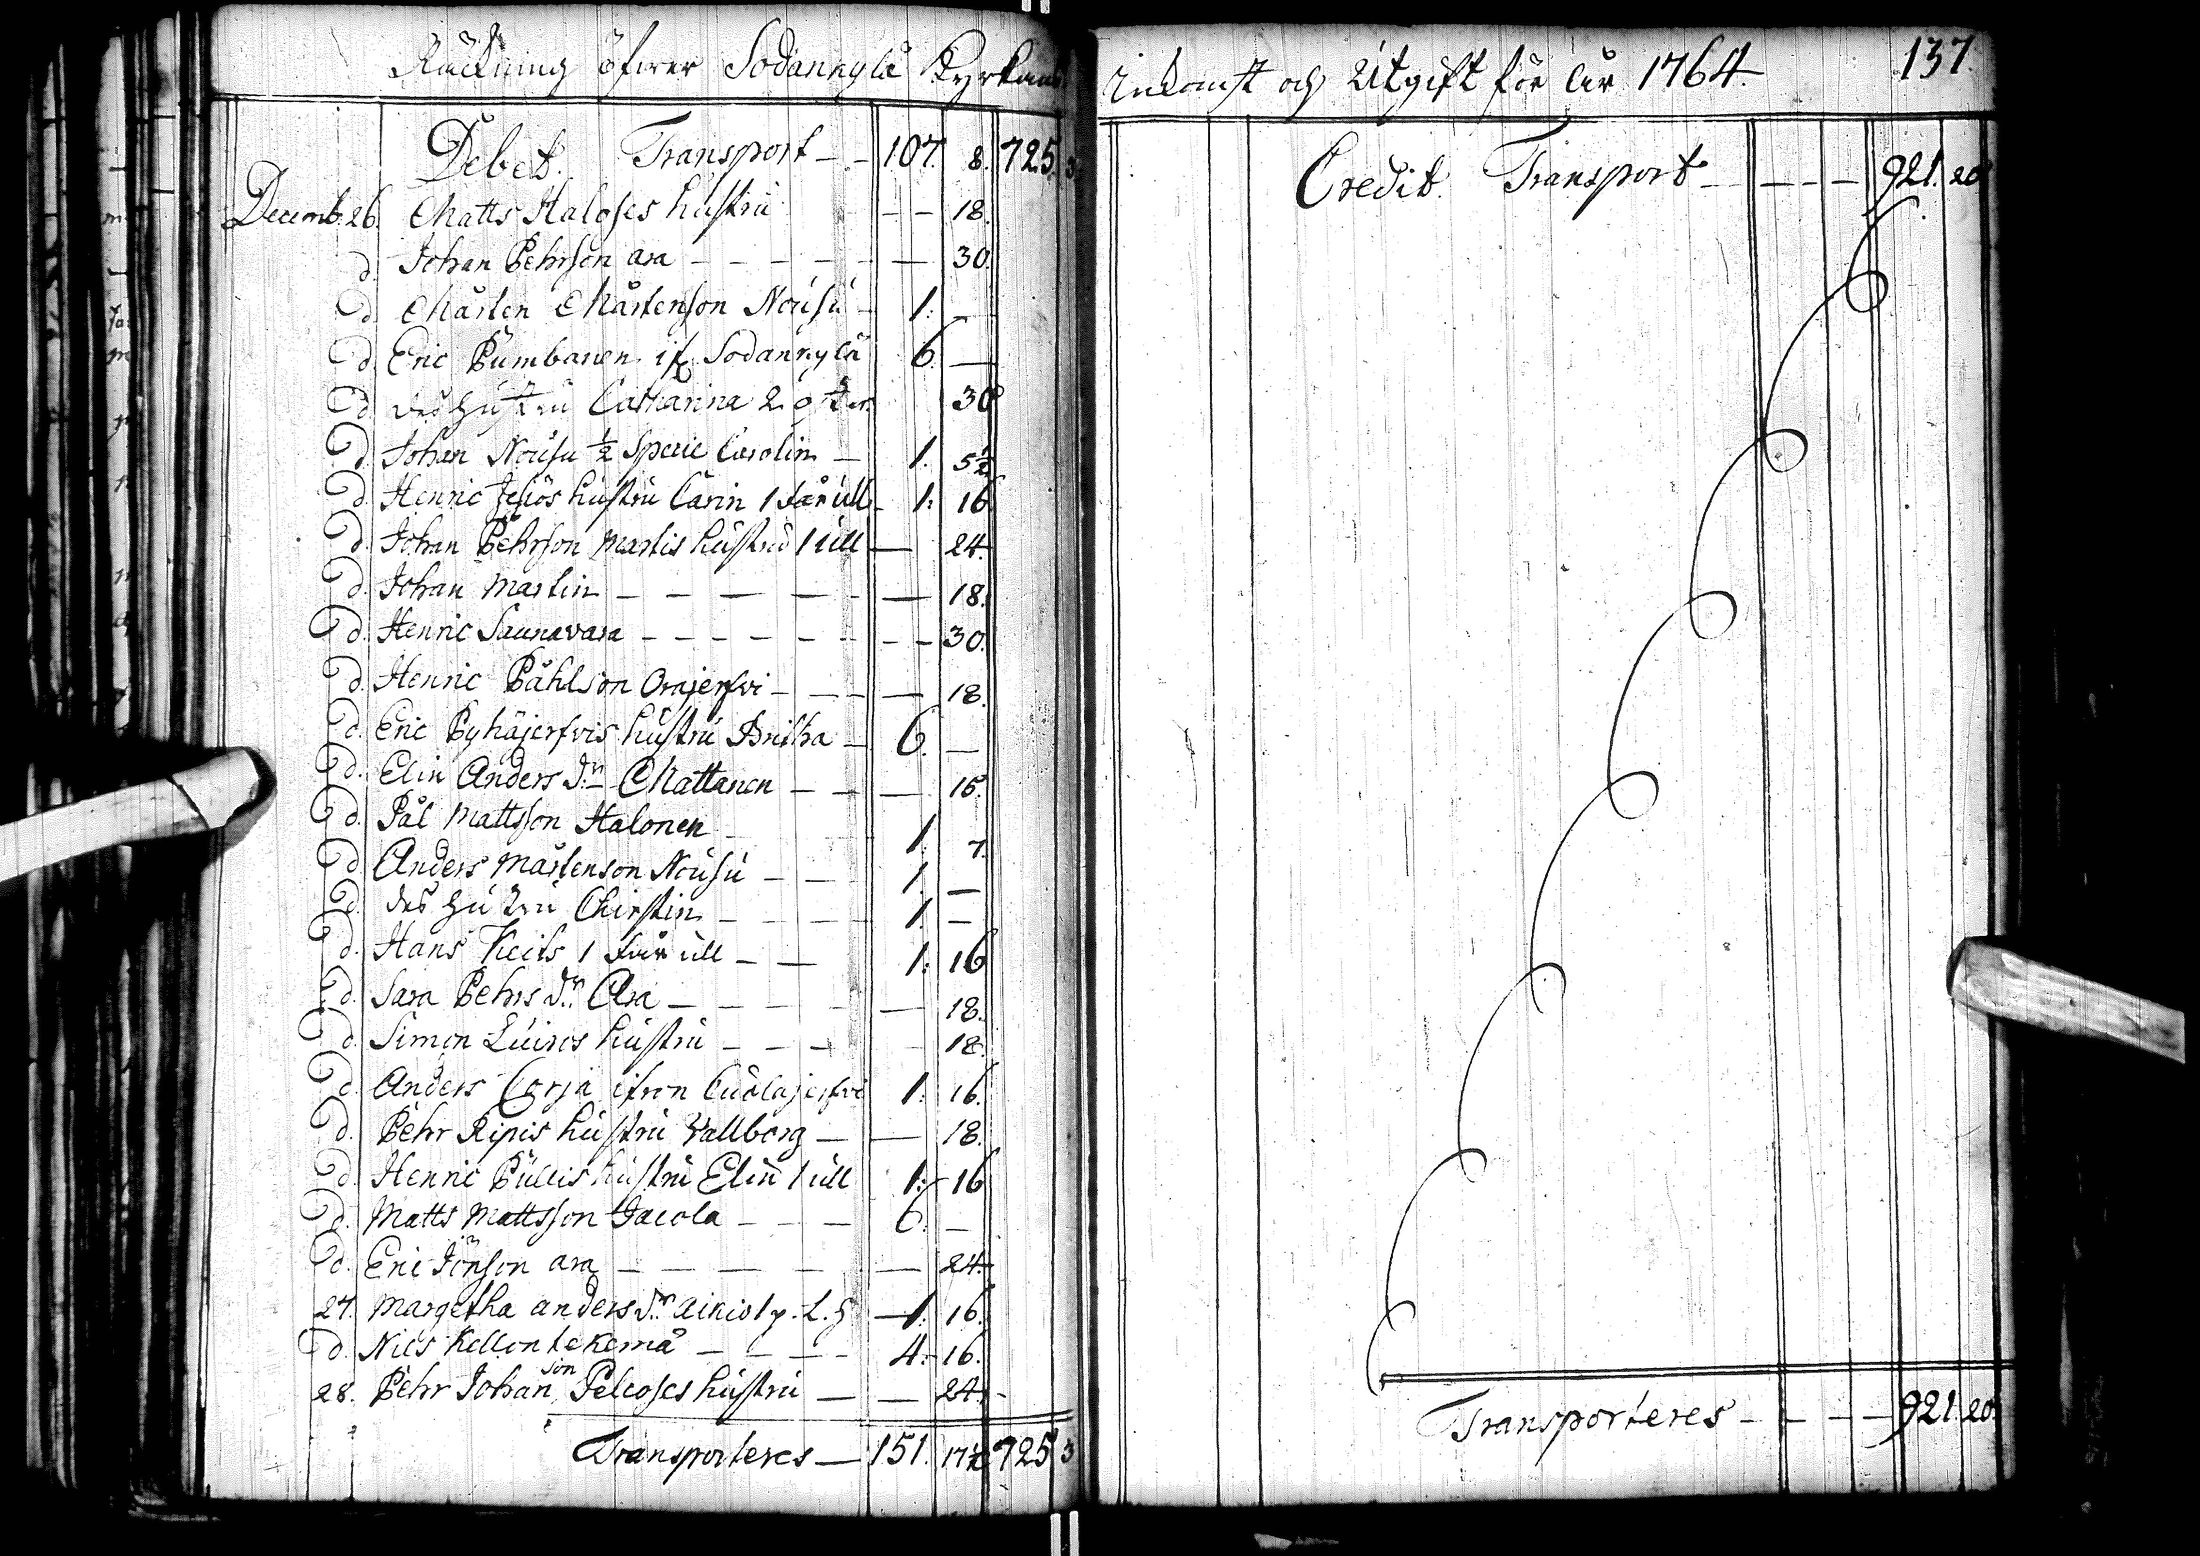 Räckning öfwer Sodankylä Kyrkans
Debet. Transport - - 107. 8. 725. 3
Decemb. 26. Matts Haloses hustru - - 18.
d. Johan Pehrson ara - - - - - - 30.
d. Mårten Mårtenson Nousu - 1. —
d. Eric Pumbanen if. Sodankylä 6. —
d. des hustru Catharina 2. 30
d. Johan Nousu ½ Specie Carolin - 1. 5½
d. Henric hustru Carin 1 får ull - 1: 16
d. Johan Pehrson Martis hustru 1 ull — 24.
d. Johan Martin - - - - - — 18.
d. Henric Saunavara - - - - - - - - 30.
d. Henric Påhlson Orajerfvi - - - — 18.
d. Eric Pyhäjerfvis hustru Britha - 6. —
d. Elin Anders dr Mattanen - - — 15.
d. Pål Mattsson Halonen - 1. 7.
d. Anders Mårtenson Nousu - - - 1. —
d. des hustru Chirstin - - - - 1. —
d. Hans Keits 1 får ull - - 1: 16
d. Sara Pehrs dr Ara - - - - — 18.
d. Simon Luiros hustru - - - - 18.
d. Anders Corja ifron 1. 16.
d. Pehr Ripis hustru Vallborg - — 18.
d. Henric Pulcis hustru Elin 1 ull 1: 16
d. Matts Mattsson Jacola - - - 6. —
d. Eric Jönson ara - - - - - — 24.
27. Margetha anders dr aikio 1 — 1: 16.
d. Nils Kellontekemä - - - - 4: 16.
28. Pehr Johanson Pelcoses hustru - — 24. -
Transporteres — 151. 17½ 725 3
Inkomst och Utgift för år 1764. 137.
Credit. Transport - - - - 921. 20
Transporteres - - - - 921. 20.